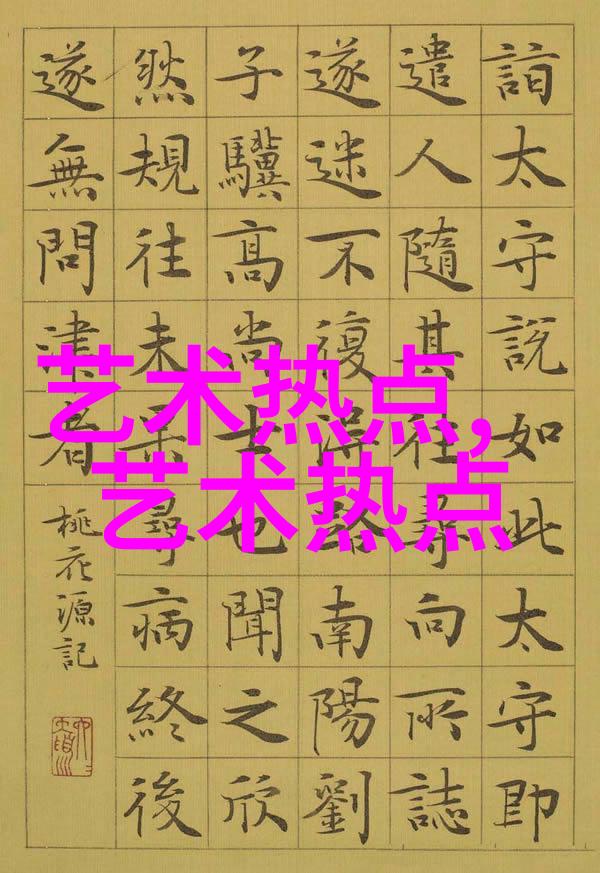 詣太守說如此太守即
遣人隨其往尋向所誌
遂迷不復得路南陽劉
子驥高尚士也聞之欣
然規往未果尋病終後
遂無問津者
桃花源記
艺术热点,
艺术热点